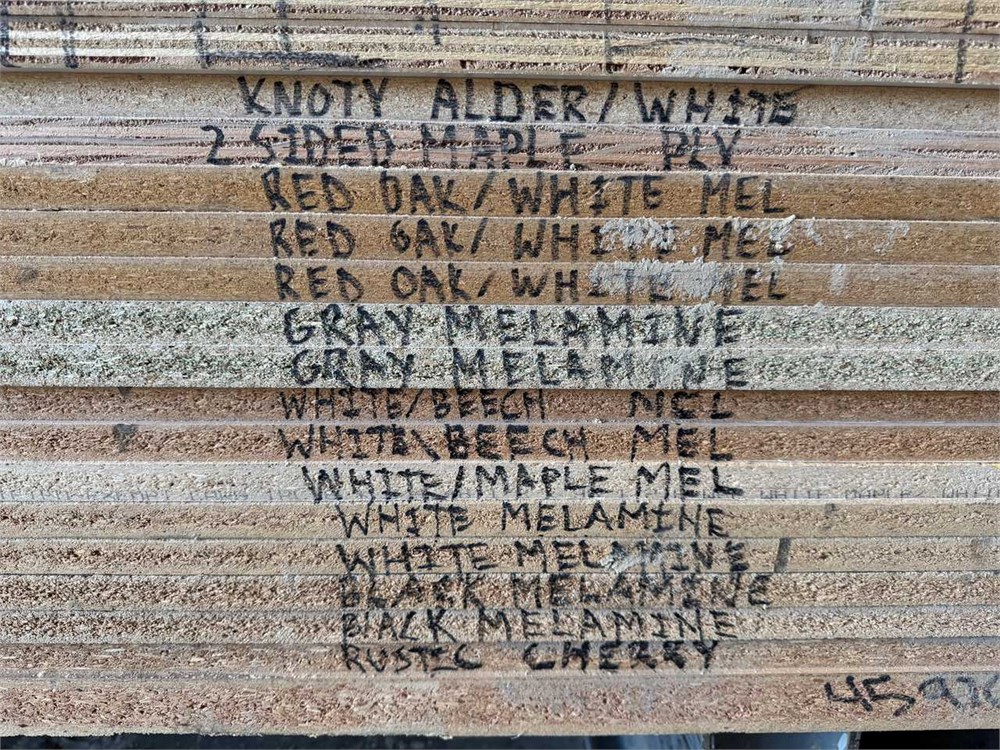 KNOTY ALDER/WHITE
2 SIDED MAPLE PLY
RED OAK/WHITE MEL
RED OAK/WHITE MEL
RED OAK/WHITE MEL
GRAY MELAMINE
GRAY MELAMINE
WHITE/BEECH MEL
WHITE\BEECH MEL
WHITE/MAPLE MEL
WHITE MELAMINE
WHITE MELAMINE
BLACK MELAMINE
BLACK MELAMINE
RUSTIC CHERRY